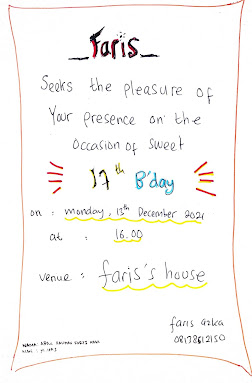 _ Faris _
Seeks the pleasure of
Your presence on the
occasion of sweet
17th B'day
on : monday, 13th December 2021
at : 16.00
venue : faris's house
faris azka